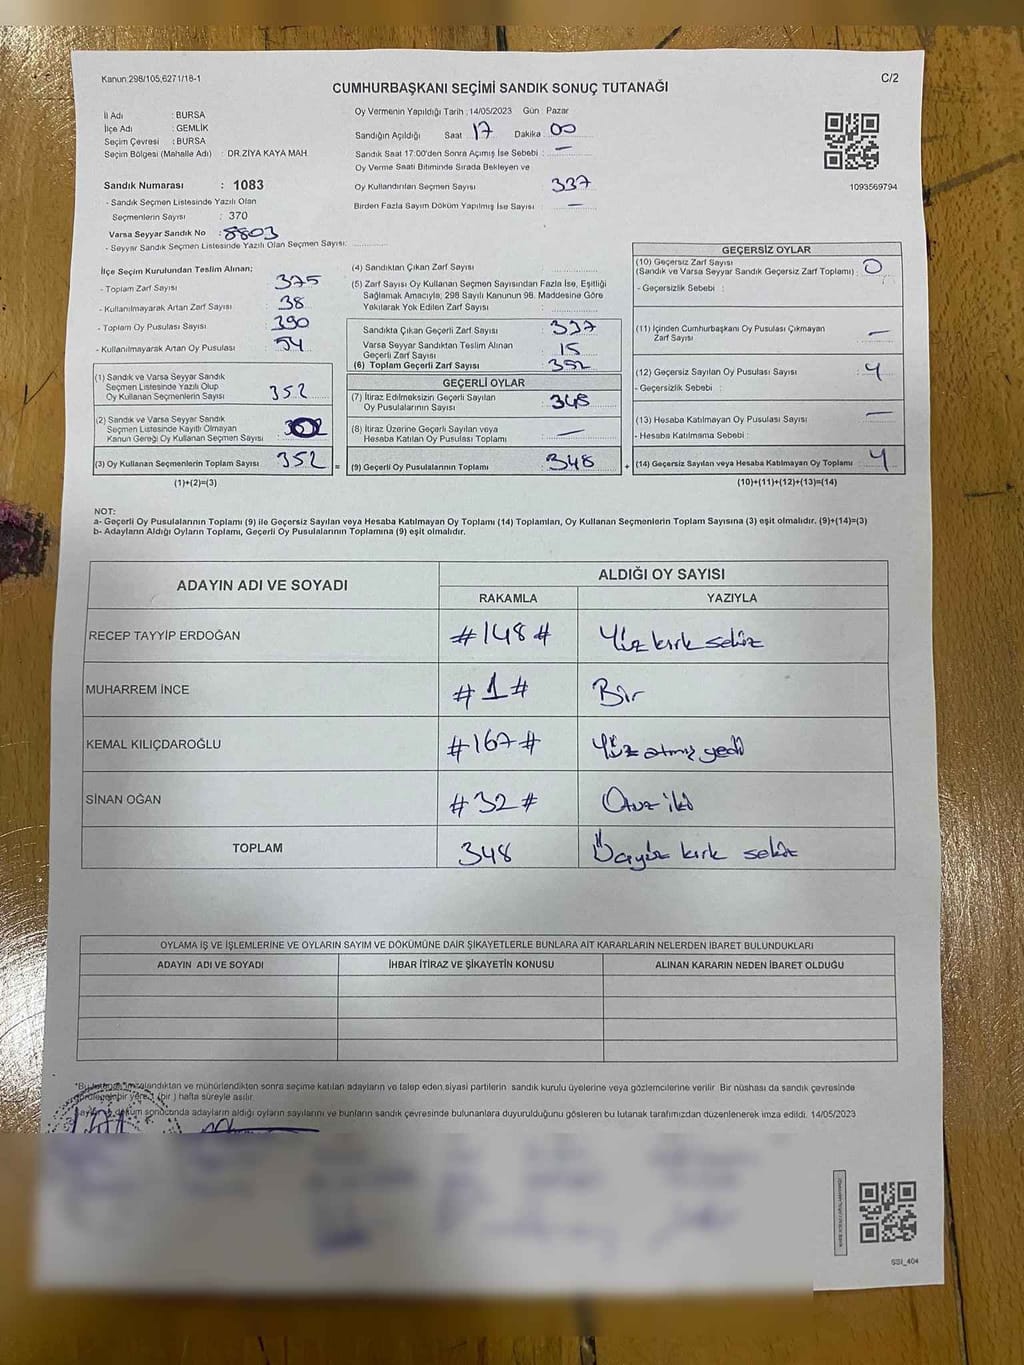 Kanun 298/105,6271/18-1
C/2
CUMHURBAŞKANI SEÇİMİ SANDIK SONUÇ TUTANAĞI
İl Adı : BURSA
İlçe Adı : GEMLİK
Seçim Çevresi : BURSA
Seçim Bölgesi (Mahalle Adı) : DR.ZİYA KAYA MAH
Sandık Numarası : 1083
- Sandık Seçmen Listesinde Yazılı Olan
Seçmenlerin Sayısı : 370
Varsa Seyyar Sandık No : 8803
- Seyyar Sandık Seçmen Listesinde Yazılı Olan Seçmen Sayısı:
Oy Vermenin Yapıldığı Tarih : 14/05/2023 Gün : Pazar
Sandığın Açıldığı Saat 17 Dakika 00
Sandık Saat 17:00'den Sonra Açımış İse Sebebi : —
Oy Verme Saati Bitiminde Sırada Bekleyen ve
Oy Kullandırılan Seçmen Sayısı 337
Birden Fazla Sayım Döküm Yapılmış İse Sayısı : —
1093569794
İlçe Seçim Kurulundan Teslim Alınan;
- Toplam Zarf Sayısı : 375
- Kullanılmayarak Artan Zarf Sayısı : 38
- Toplam Oy Pusulası Sayısı : 390
- Kullanılmayarak Artan Oy Pusulası : 54
(1) Sandık ve Varsa Seyyar Sandık
Seçmen Listesinde Yazılı Olup
Oy Kullanan Seçmenlerin Sayısı : 352
(2) Sandık ve Varsa Seyyar Sandık
Seçmen Listesinde Kayıtlı Olmayan
Kanun Gereği Oy Kullanan Seçmen Sayısı
(3) Oy Kullanan Seçmenlerin Toplam Sayısı : 352
(1)+(2)=(3)
(4) Sandıktan Çıkan Zarf Sayısı :
(5) Zarf Sayısı Oy Kullanan Seçmen Sayısından Fazla İse, Eşitliği
Sağlamak Amacıyla; 298 Sayılı Kanunun 98. Maddesine Göre
Yakılarak Yok Edilen Zarf Sayısı :
Sandıkta Çıkan Geçerli Zarf Sayısı : 337
Varsa Seyyar Sandıktan Teslim Alınan
Geçerli Zarf Sayısı : 15
(6) Toplam Geçerli Zarf Sayısı : 352
GEÇERLİ OYLAR
(7) İtiraz Edilmeksizin Geçerli Sayılan
Oy Pusulalarının Sayısı : 348
(8) İtiraz Üzerine Geçerli Sayılan veya
Hesaba Katılan Oy Pusulası Toplamı : —
= (9) Geçerli Oy Pusulalarının Toplamı : 348
GEÇERSİZ OYLAR
(10) Geçersiz Zarf Sayısı
(Sandık ve Varsa Seyyar Sandık Geçersiz Zarf Toplamı) : 0
- Geçersizlik Sebebi :
(11) İçinden Cumhurbaşkanı Oy Pusulası Çıkmayan
Zarf Sayısı : —
(12) Geçersiz Sayılan Oy Pusulası Sayısı : 4
- Geçersizlik Sebebi :
(13) Hesaba Katılmayan Oy Pusulası Sayısı : —
- Hesaba Katılmama Sebebi :
+ (14) Geçersiz Sayılan veya Hesaba Katılmayan Oy Toplamı : 4
(10)+(11)+(12)+(13)=(14)
NOT:
a- Geçerli Oy Pusulalarının Toplamı (9) ile Geçersiz Sayılan veya Hesaba Katılmayan Oy Toplamı (14) Toplamları, Oy Kullanan Seçmenlerin Toplam Sayısına (3) eşit olmalıdır. (9)+(14)=(3)
b- Adayların Aldığı Oyların Toplamı, Geçerli Oy Pusulalarının Toplamına (9) eşit olmalıdır.
ADAYIN ADI VE SOYADI ALDIĞI OY SAYISI
RAKAMLA YAZIYLA
RECEP TAYYİP ERDOĞAN #148# Yüz kırk sekiz
MUHARREM İNCE #1# Bir
KEMAL KILIÇDAROĞLU #167# Yüz atmış yedi
SİNAN OĞAN #32# Otuz iki
TOPLAM 348 Üçyüz kırk sekiz
OYLAMA İŞ VE İŞLEMLERİNE VE OYLARIN SAYIM VE DÖKÜMÜNE DAİR ŞİKAYETLERLE BUNLARA AİT KARARLARIN NELERDEN İBARET BULUNDUKLARI
ADAYIN ADI VE SOYADI İHBAR İTİRAZ VE ŞİKAYETİN KONUSU ALINAN KARARIN NEDEN İBARET OLDUĞU
*Bu tutanak imzalandıktan ve mühürlendikten sonra seçime katılan adayların ve talep eden siyasi partilerin sandık kurulu üyelerine veya gözlemcilerine verilir. Bir nüshası da sandık çevresinde
görülegelen bir yere 1 (bir) hafta süreyle asılır.
döküm sonucunda adayların aldığı oyların sayılarını ve bunların sandık çevresinde bulunanlara duyurulduğunu gösteren bu tutanak tarafımızdan düzenlenerek imza edildi. 14/05/2023
SSI_404